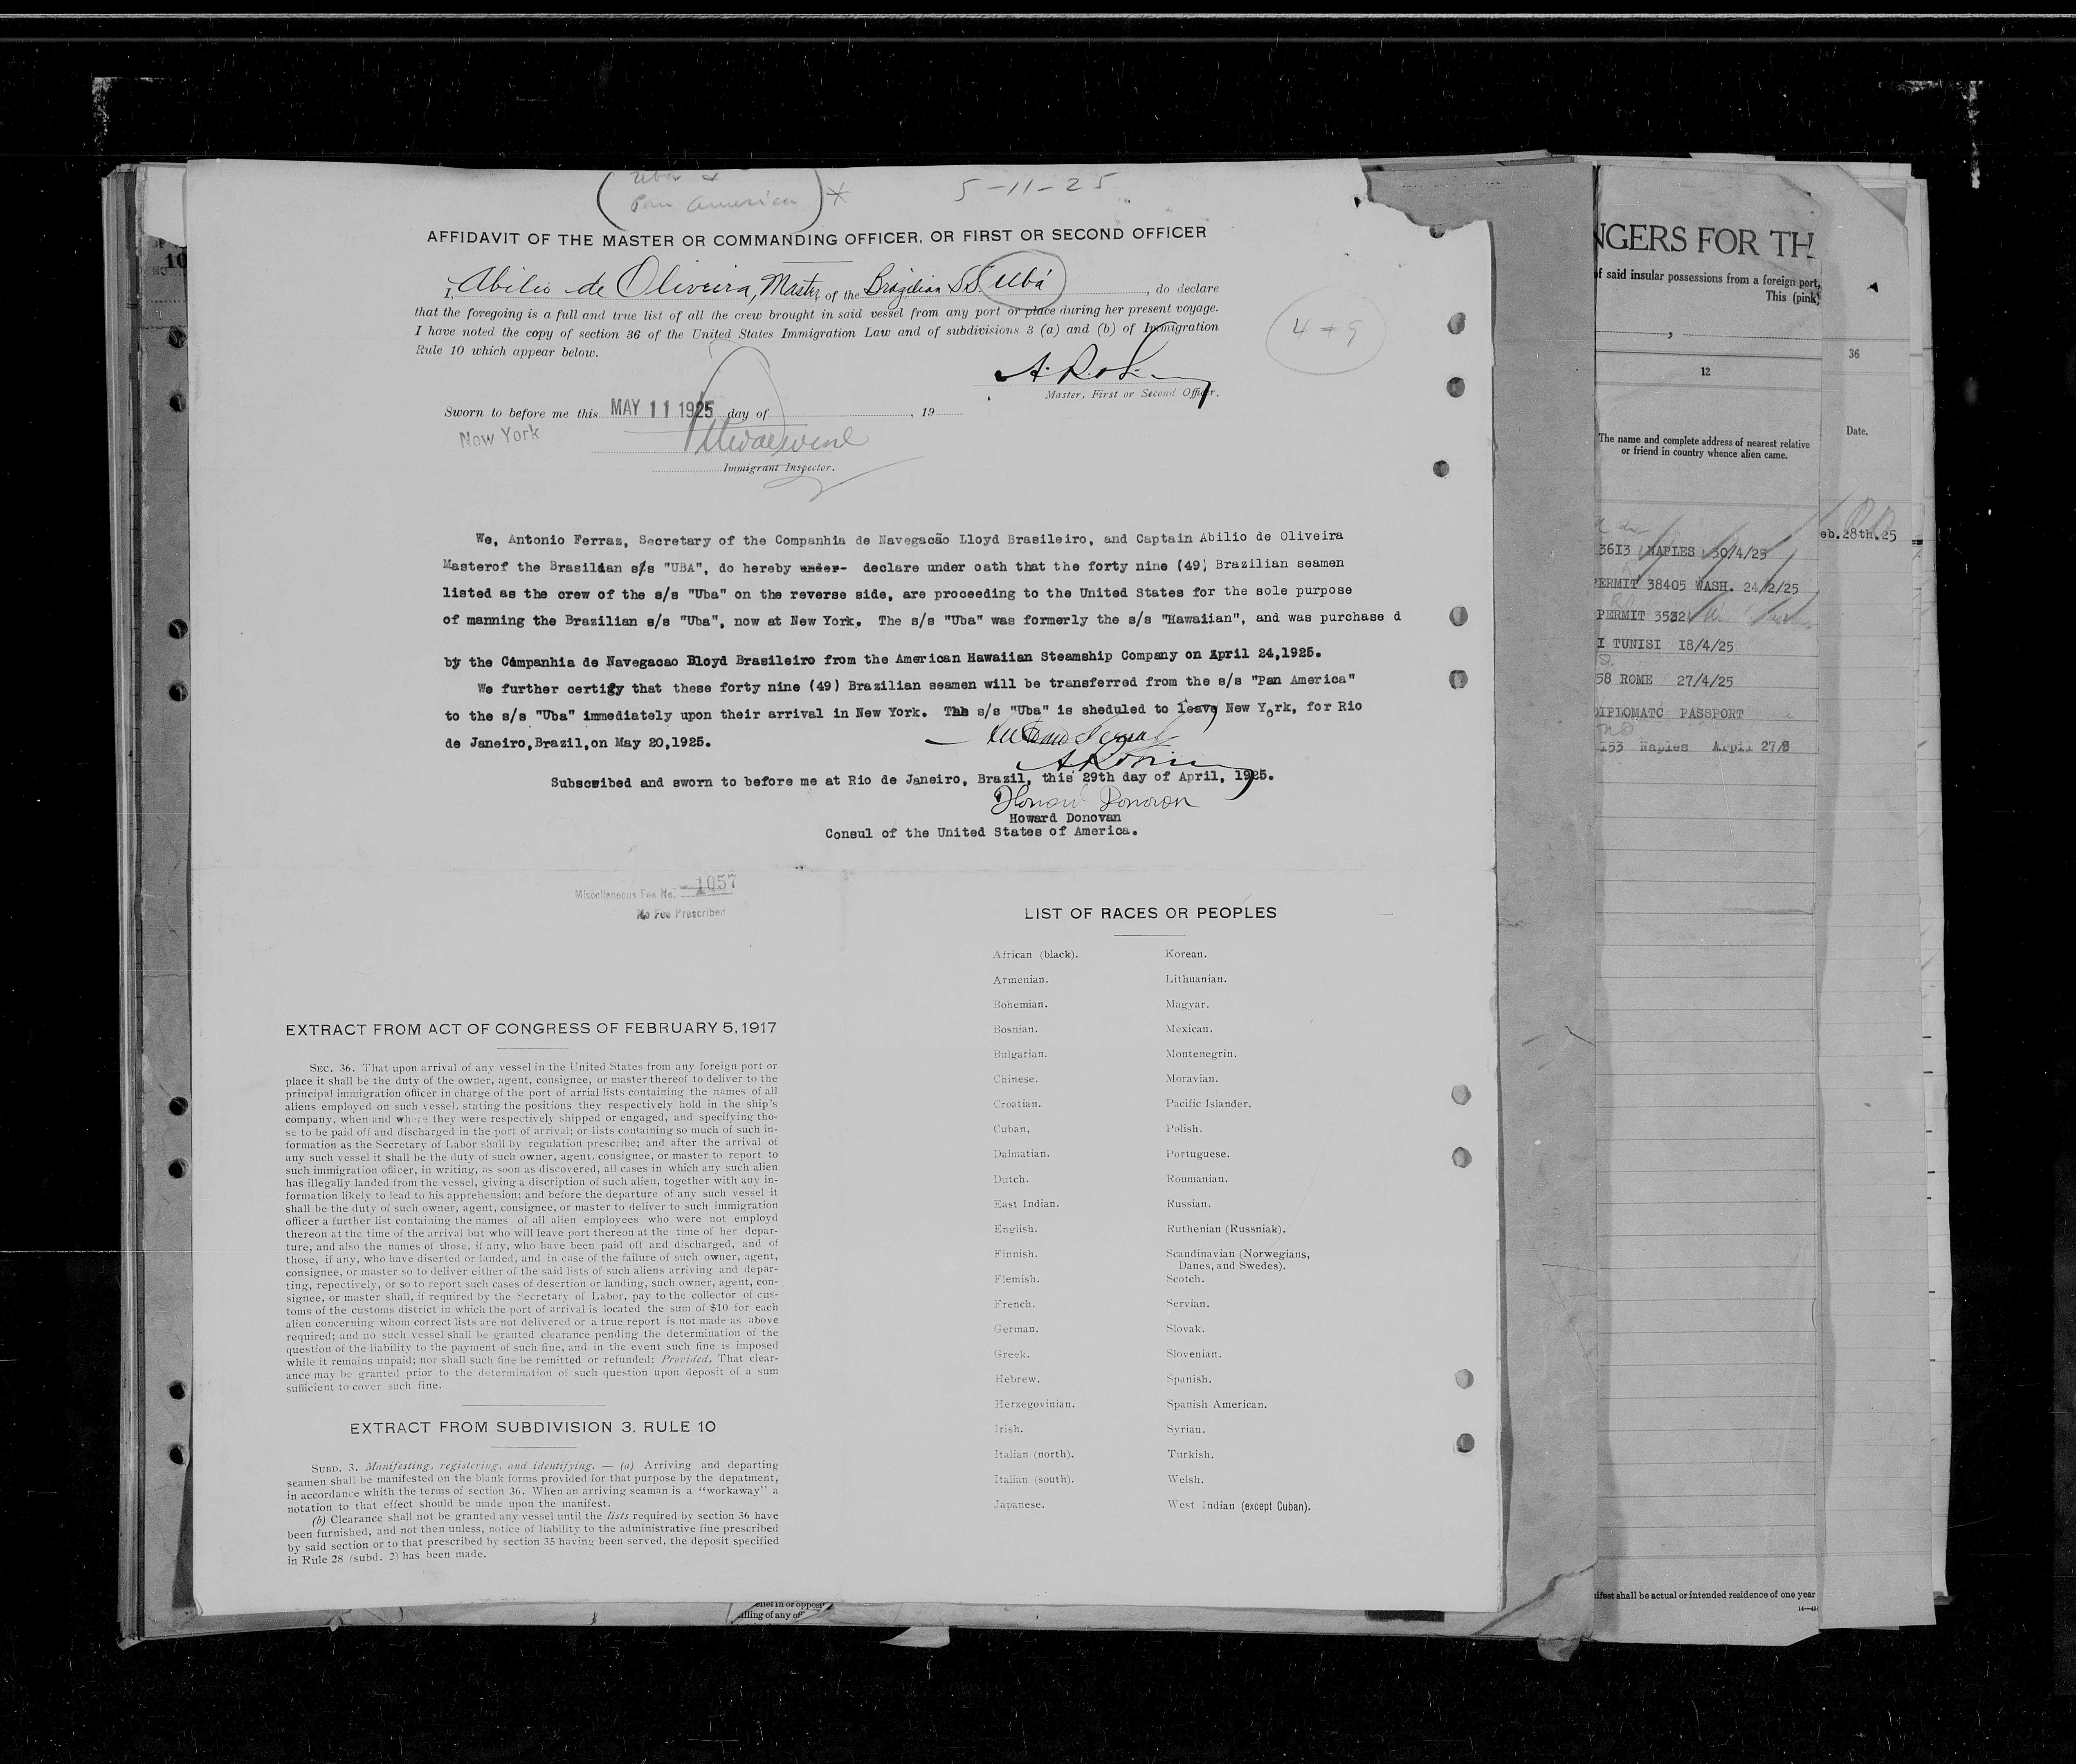 Uba &
Pan America
5-11-25
AFFIDAVIT OF THE MASTER OR COMMANDING OFFICER, OR FIRST OR SECOND OFFICER
I, Abilio de Oliveira, Master of the Brazilian SS Ubá, do declare
that the foregoing is a full and true list of all the crew brought in said vessel from any port or place during her present voyage.
I have noted the copy of section 36 of the United States Immigration Law and of subdivisions 3 (a) and (b) of Immigration
Rule 10 which appear below.
Master, First or Second Officer.
Sworn to before me this MAY 11 1925 day of , 19
New York
Immigrant Inspector.
We, Antonio Ferraz, Secretary of the Companhia de Navegacão Lloyd Brasileiro, and Captain Abilio de Oliveira
Masterof the Brasilian s/s "UBA", do hereby under- declare under oath that the forty nine (49) Brazilian seamen
listed as the crew of the s/s "Uba" on the reverse side, are proceeding to the United States for the sole purpose
of manning the Brazilian s/s "Uba", now at New York. The s/s "Uba" was formerly the s/s "Hawaiian", and was purchase d
by the Companhia de Navegacao Lloyd Brasileiro from the American Hawaiian Steamship Company on April 24,1925.
We further certify that these forty nine (49) Brazilian seamen will be transferred from the s/s "Pan America"
to the s/s "Uba" immediately upon their arrival in New York. The s/s "Uba" is sheduled to leave New York, for Rio
de Janeiro,Brazil,on May 20,1925.
Subscwibed and sworn to before me at Rio de Janeiro, Brazil, this 29th day of April, 1925.
Howard Donovan
Howard Donovan
Consul of the United States of America.
Miscellaneous Fee No. 1057
No Fee Prescribed
EXTRACT FROM ACT OF CONGRESS OF FEBRUARY 5, 1917
SEC. 36. That upon arrival of any vessel in the United States from any foreign port or
place it shall be the duty of the owner, agent, consignee, or master thereof to deliver to the
principal immigration officer in charge of the port of arrial lists containing the names of all
aliens employed on such vessel, stating the positions they respectively hold in the ship's
company, when and where they were respectively shipped or engaged, and specifying tho-
se to be paid off and discharged in the port of arrival; or lists containing so much of such in-
formation as the Secretary of Labor shall by regulation prescribe; and after the arrival of
any such vessel it shall be the duty of such owner, agent, consignee, or master to report to
such immigration officer, in writing, as soon as discovered, all cases in which any such alien
has illegally landed from the vessel, giving a discription of such alien, together with any in-
formation likely to lead to his apprehension; and before the departure of any such vessel it
shall be the duty of such owner, agent, consignee, or master to deliver to such immigration
officer a further list containing the names of all alien employees who were not employd
thereon at the time of the arrival but who will leave port thereon at the time of her depar-
ture, and also the names of those, if any, who have been paid off and discharged, and of
those, if any, who have diserted or landed, and in case of the failure of such owner, agent,
consignee, or master so to deliver either of the said lists of such aliens arriving and depar-
ting, repectively, or so to report such cases of desertion or landing, such owner, agent, con-
signee, or master shall, if required by the Secretary of Labor, pay to the collector of cus-
toms of the customs district in which the port of arrival is located the sum of $10 for each
alien concerning whom correct lists are not delivered or a true report is not made as above
required; and no such vessel shall be granted clearance pending the determination of the
question of the liability to the payment of such fine, and in the event such fine is imposed
while it remains unpaid; nor shall such fine be remitted or refunded: Provided, That clear-
ance may be granted prior to the determination of such question upon deposit of a sum
sufficient to cover such fine.
EXTRACT FROM SUBDIVISION 3, RULE 10
SUBD. 3. Manifesting, registering, and identifying. — (a) Arriving and departing
seamen shall be manifested on the blank forms provided for that purpose by the depatment,
in accordance whith the terms of section 36. When an arriving seaman is a "workaway" a
notation to that effect should be made upon the manifest.
(b) Clearance shall not be granted any vessel until the lists required by section 36 have
been furnished, and not then unless, notice of liability to the administrative fine prescribed
by said section or to that prescribed by section 35 having been served, the deposit specified
in Rule 28 (subd. 2) has been made.
LIST OF RACES OR PEOPLES
African (black).
Armenian.
Bohemian.
Bosnian.
Bulgarian.
Chinese.
Croatian.
Cuban,
Dalmatian.
Dutch.
East Indian.
English.
Finnish.
Flemish.
French.
German.
Greek.
Hebrew.
Herzegovinian.
Irish.
Italian (north).
Italian (south).
Japanese.
Korean.
Lithuanian.
Magyar.
Mexican.
Montenegrin.
Moravian.
Pacific Islander.
Polish.
Portuguese.
Roumanian.
Russian.
Ruthenian (Russniak).
Scandinavian (Norwegians,
Danes, and Swedes).
Scotch.
Servian.
Slovak.
Slovenian.
Spanish.
Spanish American.
Syrian.
Turkish.
Welsh.
West Indian (except Cuban).
NGERS FOR TH
of said insular possessions from a foreign port,
This (pink)
12
The name and complete address of nearest relative
or friend in country whence alien came.
3613 NAPLES 30/4/25
PERMIT 38405 WASH. 24/2/25
PERMIT 3532
I TUNISI 18/4/25
58 ROME 27/4/25
DIPLOMATC PASSPORT
153 Naples Arpil 27/8
ifest shall be actual or intended residence of one year
36
Date.
eb.28th.25